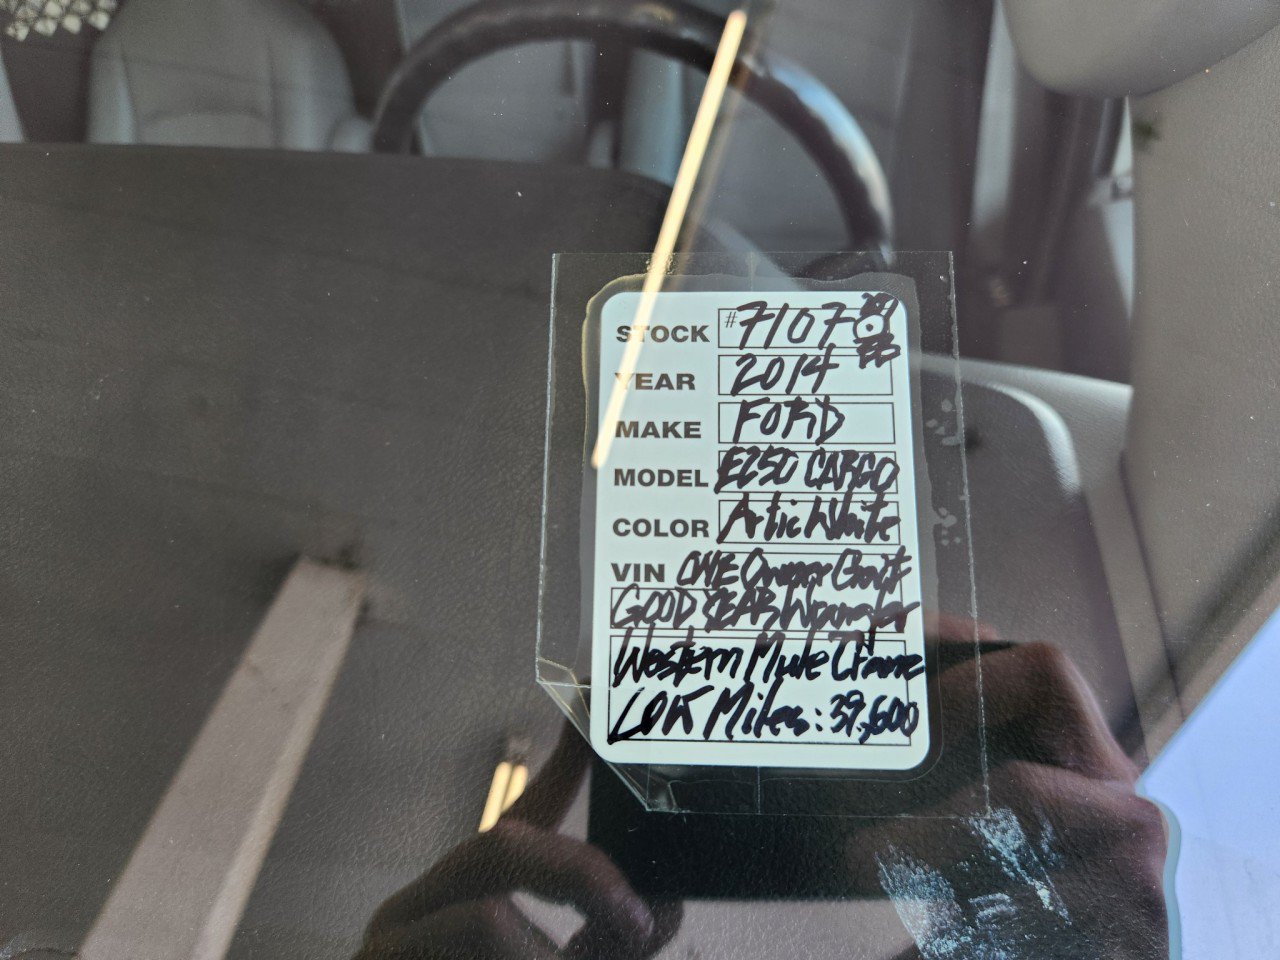 STOCK #7107
YEAR 2014
MAKE FORD
MODEL E250 CARGO
COLOR Artic White
VIN ONE Owner Gov't
GOOD YEAR Wrangler
Western Mule Crane
LOW Miles: 39,600